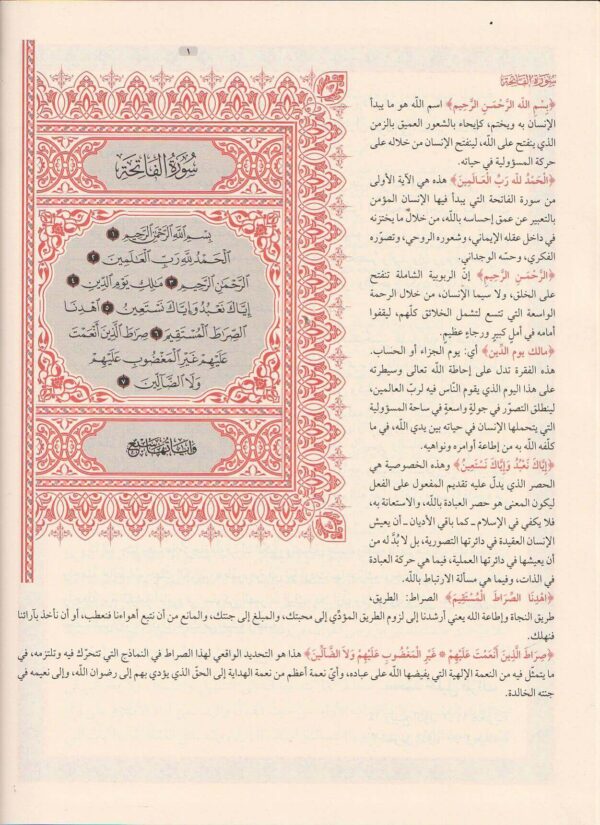 ١
سورة الفاتحة
سُورَةُ الْفَاتِحَةِ
بِسْمِ اللَّهِ الرَّحْمَنِ الرَّحِيمِ ١
الْحَمْدُ لِلَّهِ رَبِّ الْعَالَمِينَ ٢
الرَّحْمَنِ الرَّحِيمِ ٣ مَالِكِ يَوْمِ الدِّينِ ٤
إِيَّاكَ نَعْبُدُ وَإِيَّاكَ نَسْتَعِينُ ٥ اهْدِنَا
الصِّرَاطَ الْمُسْتَقِيمَ ٦ صِرَاطَ الَّذِينَ أَنْعَمْتَ
عَلَيْهِمْ غَيْرِ الْمَغْضُوبِ عَلَيْهِمْ
وَلَا الضَّالِّينَ ٧
وَآيَاتُهَا سَبْعٌ
﴿بِسْمِ اللَّه الرَّحْمَنِ الرَّحِيمِ﴾ اسم اللّه هو ما يبدأ
الإنسان به ويختم، كإيحاء بالشعور العميق بالزمن
الذي ينفتح على اللّه، لينفتح الإنسان من خلاله على
حركة المسؤولية في حياته.
﴿الْحَمْدُ للّه رَبِّ الْعَالَمِينَ﴾ هذه هي الآية الأولى
من سورة الفاتحة التي يبدأ فيها الإنسان المؤمن
بالتعبير عن عمق إحساسه باللّه، من خلال ما يختزنه
في داخل عقله الإيماني، وشعوره الروحي، وتصوّره
الفكري، وحسّه الوجداني.
﴿الرَّحْمَنِ الرَّحِيمِ﴾ إنّ الربوبية الشاملة تنفتح
على الخلق، ولا سيما الإنسان، من خلال الرحمة
الواسعة التي تتسع لتشمل الخلائق كلّهم، ليقفوا
أمامه في أملٍ كبيرٍ ورجاءٍ عظيمٍ.
﴿مالك يوم الدّين﴾ أي: يوم الجزاء أو الحساب.
هذه الفقرة تدل على إحاطة اللّه تعالى وسيطرته
على هذا اليوم الذي يقوم النّاس فيه لربّ العالمين،
لينطلق التصوّر في جولةٍ واسعةٍ في ساحة المسؤولية
التي يتحملها الإنسان في حياته بين يدي اللّه، في ما
كلّفه اللّه به من إطاعة أوامره ونواهيه.
﴿إِيَّاكَ نَعْبُدُ وَإِيَّاكَ نَسْتَعِينُ﴾ وهذه الخصوصية هي
الحصر الذي يدلّ عليه تقديم المفعول على الفعل
ليكون المعنى هو حصر العبادة باللّه، والاستعانة به،
فلا يكفي في الإسلام ـ كما باقي الأديان ـ أن يعيش
الإنسان العقيدة في دائرتها التصورية، بل لا بُدَّ له من
أن يعيشها في دائرتها العملية، فيما هي حركة العبادة
في الذات، وفيما هي مسألة الارتباط باللّه.
﴿اهْدِنَا الصِّرَاطَ الْمُسْتَقِيمَ﴾ الصراط: الطريق،
طريق النجاة وإطاعة الله يعني أرشدنا إلى لزوم الطريق المؤدّي إلى محبتك، والمبلغ إلى جنتك، والمانع من أن نتبع أهواءنا فنعطب، أو أن نأخذ بآرائنا
فنهلك.
﴿صِرَاطَ الَّذِينَ أَنْعَمْتَ عَلَيْهِمْ * غَيْرِ الْمَغْضُوبِ عَلَيْهِمْ وَلاَ الضَّالِّينَ﴾ هذا هو التحديد الواقعي لهذا الصراط في النماذج التي تتحرّك فيه وتلتزمه، في
ما يتمثّل فيه من النعمة الإلهية التي يفيضها اللّه على عباده، وأيّ نعمة أعظم من نعمة الهداية إلى الحقّ الذي يؤدي بهم إلى رضوان اللّه، وإلى نعيمه في
جنته الخالدة.